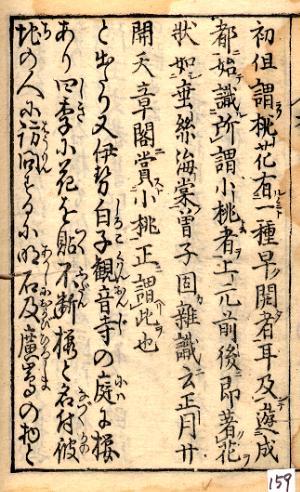 初但謂桃花有一種早開者耳及遊成
都始識所謂小桃者上元前後即著花
狀如垂絲海棠曾子固雜識云正月廿
開天章閣賞小桃正謂此也
と出たり又伊勢白子観音寺の庭に桜
あり四季に花を貼不断桜と名付彼
地の人に訪問するに明石及廣嶌の物と
159